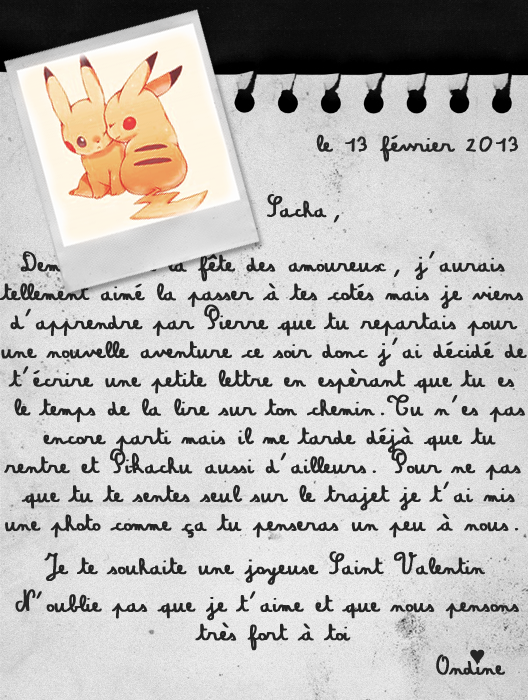 le 13 février 2013
Sacha,
la fête des amoureux, j'aurais
tellement aimé la passer à tes cotés mais je viens
d'apprendre par Pierre que tu repartais pour
une nouvelle aventure ce soir donc j'ai décidé de
t'écrire une petite lettre en espèrant que tu es
le temps de la lire sur ton chemin.Tu n'es pas
encore parti mais il me tarde déjà que tu
rentre et Pikachu aussi d'ailleurs. Pour ne pas
que tu te sentes seul sur le trajet je t'ai mis
une photo comme ça tu penseras un peu à nous.
Je te souhaite une joyeuse Saint Valentin
N'oublie pas que je t'aime et que nous pensons
très fort à toi
Ondine